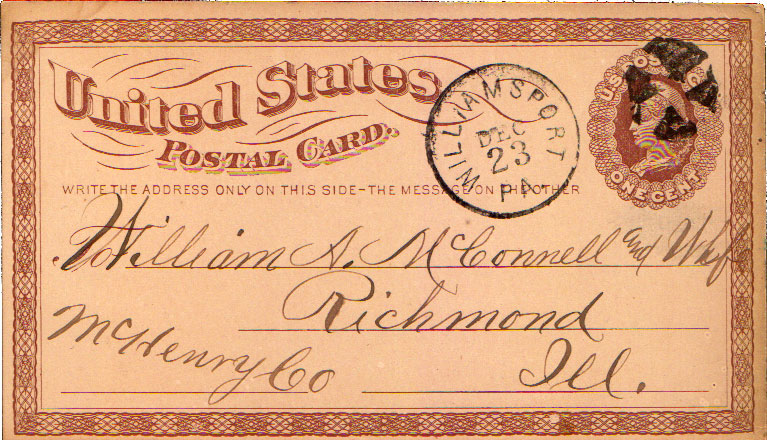 United States
POSTAL CARD.
WRITE THE ADDRESS ONLY ON THIS SIDE-THE MESSAGE ON THE OTHER
WILLIAMSPORT
DEC
23
PA.
U.S. POSTAGE
ONE CENT
William A. McConnell and Wife
Richmond
McHenry Co
Ill.